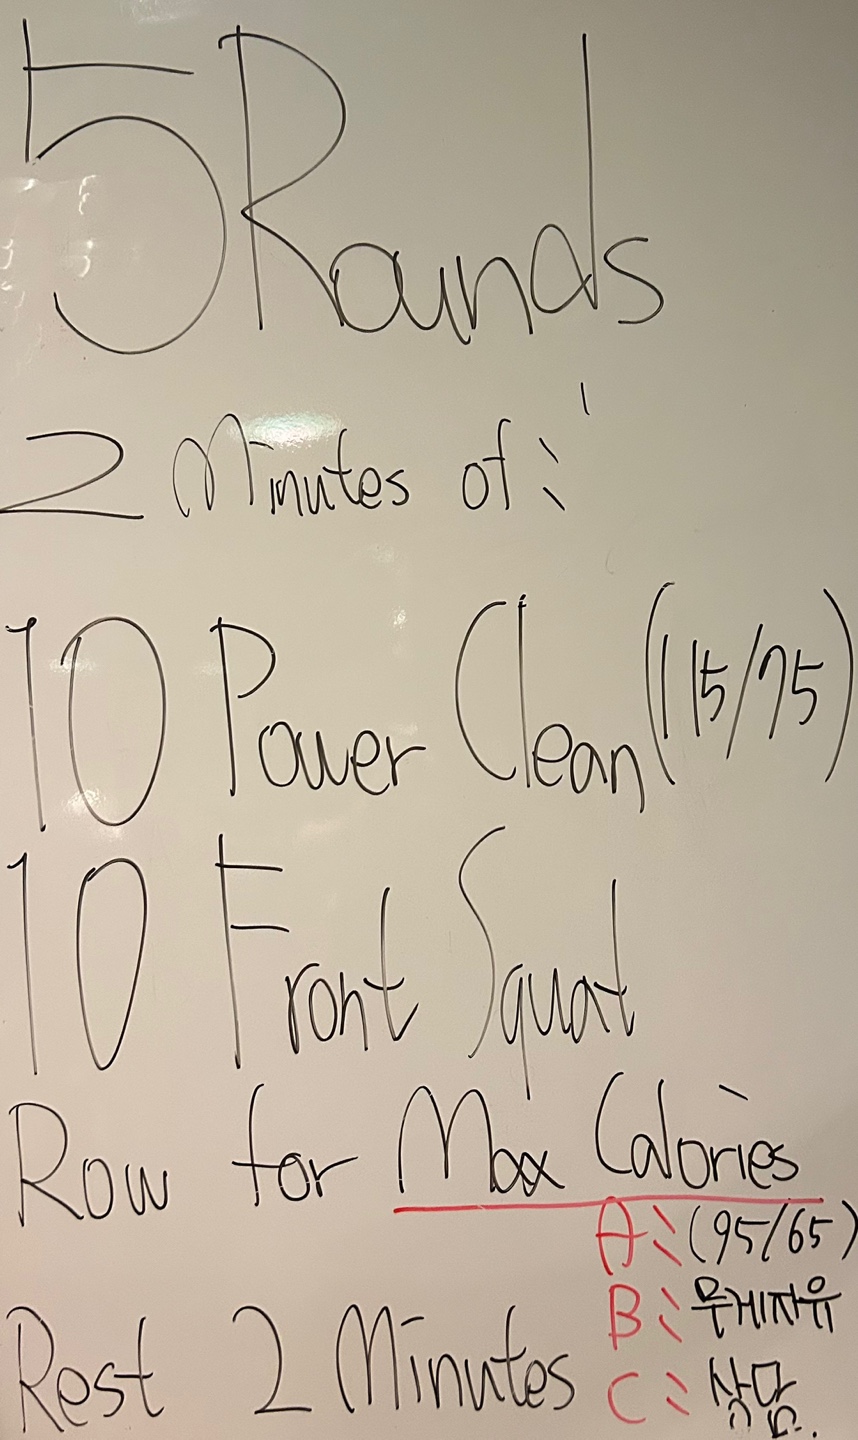 5 Rounds
2 Minutes of :
10 Power Clean (115/75)
10 Front Squat
Row for Max Calories
A : (95/65)
B : 무게자유
C : 상담.
Rest 2 Minutes